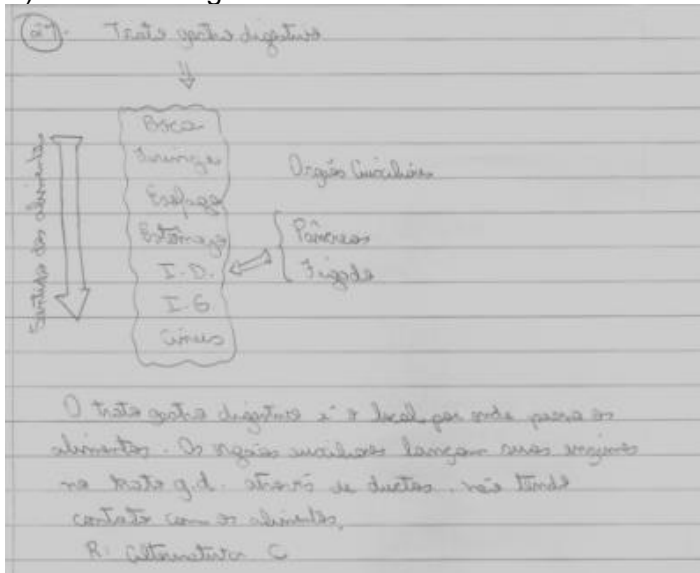 27. Trato gastro digestivo
Boca
Faringe
Esofago
Estômago
I.D.
I.G.
Ânus
Sentido dos alimentos
Orgãos Auxiliares
Pâncreas
Fígado
O trato gastro digestivo é o local por onde passa os
alimentos. Os orgãos auxiliares lançam suas enzimas
no trato g.d. através de ductos, não tendo
contato com os alimentos.
R: Alternativa C